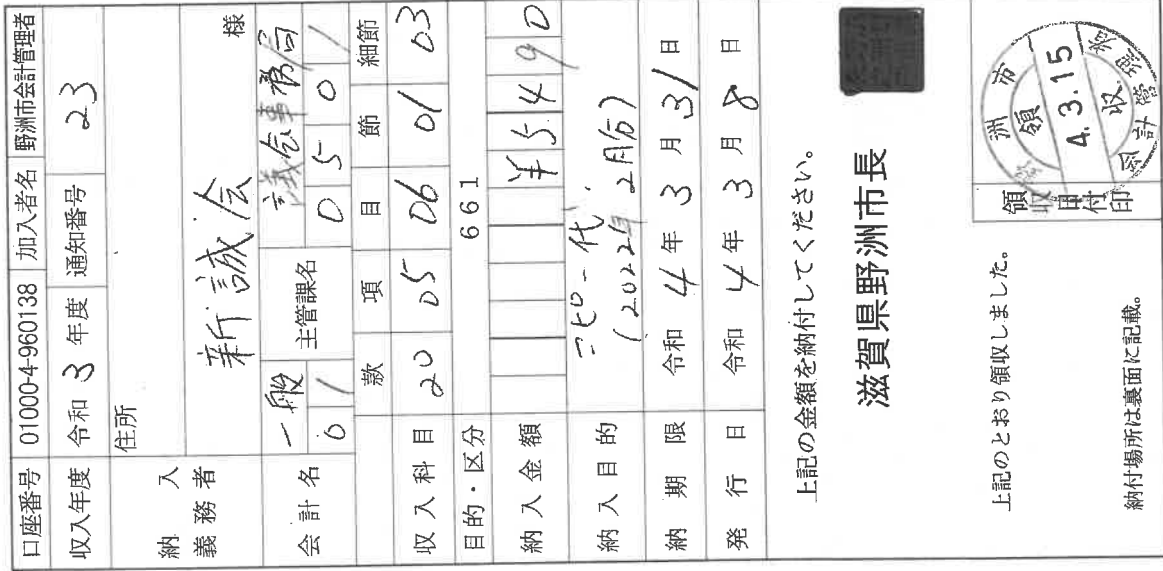 口座番号 01000-4-960138 加入者名 野洲市会計管理者
収入年度 令和 3 年度 通知番号 23
納入義務者 住所
新誠会 様
会計名 一般 主管課名 議会事務局
01 0501
款 項 目 節 細節
収入科目 20 05 06 01 03
目的・区分 661
納入金額 ¥5490
納入目的 コピー代
(2022年2月分)
納期限 令和 4 年 3 月 31 日
発行日 令和 4 年 3 月 8 日
上記の金額を納付してください。
滋賀県野洲市長
上記のとおり領収しました。
領収日付印
野洲市
領収
4.3.15
会計管理者
納付場所は裏面に記載。